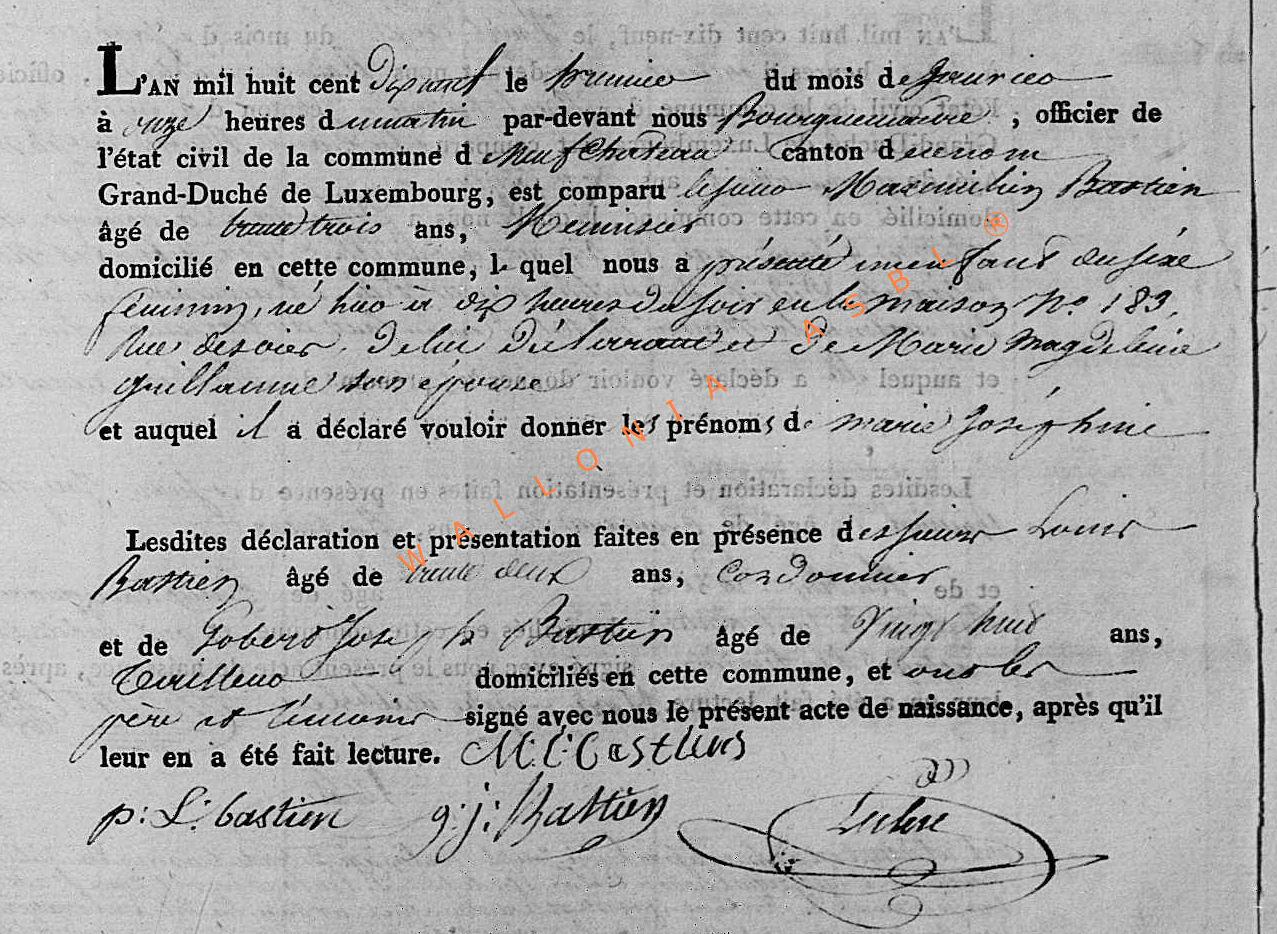 L'AN mil huit cent dix neuf le premier du mois de Janvier
à onze heures du matin par-devant nous , officier de
l'état civil de la commune de Neufchateau canton de ce nom
Grand-Duché de Luxembourg, est comparu le sieur Maximilien Bastien
âgé de trente trois ans, Menuisier
domicilié en cette commune, le quel nous a présenté un enfant du sexe
féminin, né hier à dix heures du soir en la maison No. 183.
Rue de lui déclarant et de Marie Magdeleine
guillaume son épouse
et auquel il a déclaré vouloir donner les prénoms de marie joséphine
Lesdites déclaration et présentation faites en présence des sieurs Louis
Bastien âgé de trente deux ans, Cordonnier
et de Gobert Joseph Bastien âgé de Vingt huit ans,
Tailleur domiciliés en cette commune, et ont les
père et témoins signé avec nous le présent acte de naissance, après qu'il
leur en a été fait lecture.
p: L: bastien g: j: Bastien
WALLONIA ASBL ®